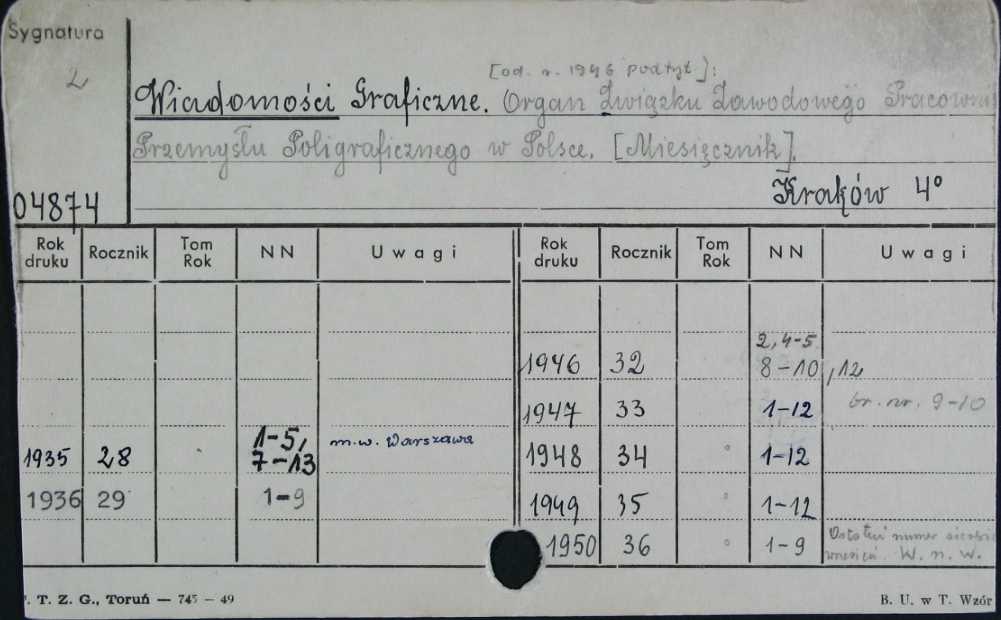 Sygnatura
2
[od. r. 1946 podtyt.]:
Wiadomości Graficzne. Organ Związku Zawodowego Pracown
Przemysłu Poligraficznego w Polsce. [Miesięcznik].
Kraków 4°
04874
Rok druku Rocznik Tom Rok NN Uwagi Rok druku Rocznik Tom Rok NN Uwagi
2, 4-5
1946 32 8-10, 12
1947 33 1-12 br. nr. 9-10
1935 28 1-5, 7-13 m.w. Warszawa 1948 34 1-12
1936 29 1-9 1949 35 1-12
1950 36 1-9 Ostatni numer sierpień
wrzesień. W. n. w.
T. Z. G., Toruń — 745 - 49
B. U. w T. Wzór